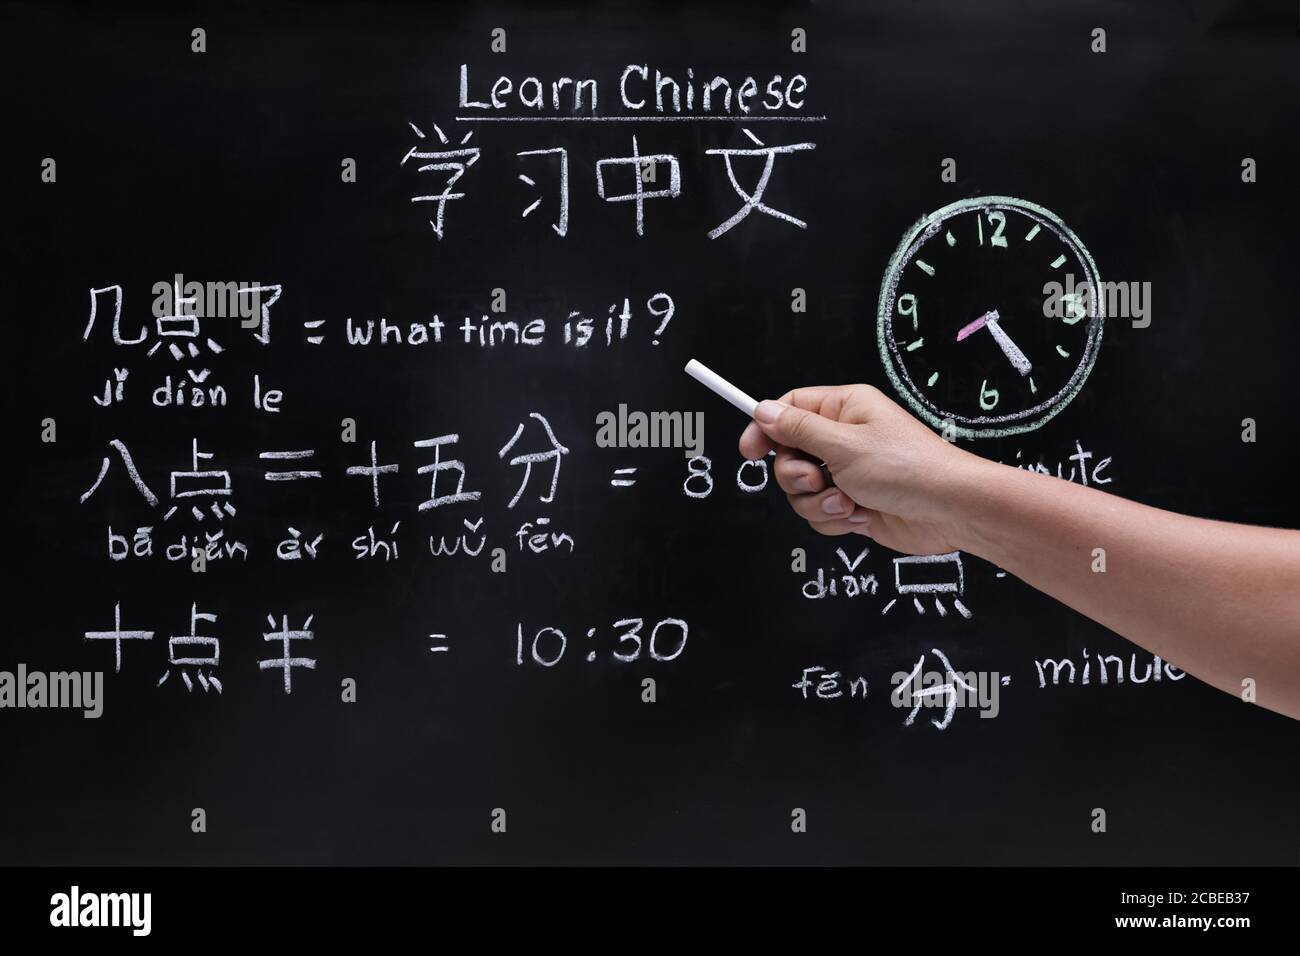 Learn Chinese
学习中文
几点了 = what time is it?
jǐ diǎn le
八点二十五分 = 8 0
bā diǎn èr shí wǔ fēn
十点半 = 10:30
12
3
6
9
diǎn 点
fēn 分 = minute
alamy
Image ID: 2CBEB37
www.alamy.com